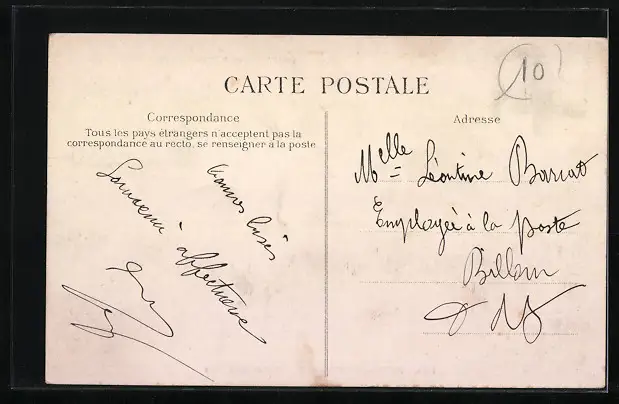 10
CARTE POSTALE
Correspondance
Tous les pays étrangers n'acceptent pas la
correspondance au recto, se renseigner à la poste
Bonnes bises
Souvenir affectueux
Adresse
Melle Léontine Barrat
Employée à la poste
Billom